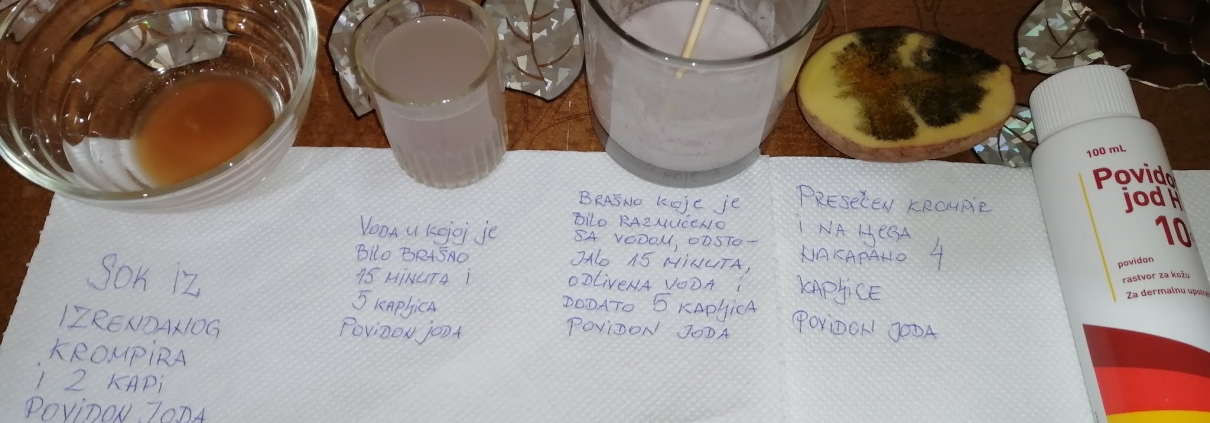 SOK IZ
IZRENDANOG
KROMPIRA
I 2 KAPI
POVIDON JODA
VODA U KOJOJ JE
BILO BRAŠNO
15 MINUTA I
5 KAPLJICA
POVIDON JODA
BRAŠNO KOJE JE
BILO RAZMUĆENO
SA VODOM, ODSTO-
JALO 15 MINUTA,
ODLIVENA VODA I
DODATO 5 KAPLJICA
POVIDON JODA
PRESEČEN KROMPIR
I NA NJEGA
NAKAPANO 4
KAPLJICE
POVIDON JODA
100 mL
Povido
jod H
10
povidon
rastvor za kožu
Za dermalnu upot